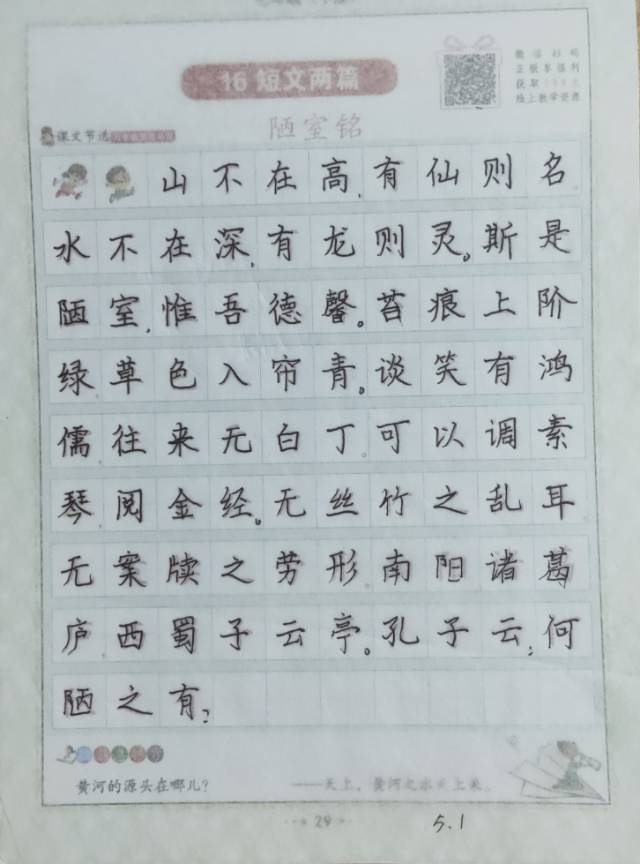 16 短文两篇
微信扫码
正版享福利
获取
线上教学资源
课文节选
陋室铭
山不在高,有仙则名
水不在深,有龙则灵。斯是
陋室,惟吾德馨。苔痕上阶
绿草色入帘青。谈笑有鸿
儒往来无白丁。可以调素
琴阅金经。无丝竹之乱耳
无案牍之劳形。南阳诸葛
庐西蜀子云亭。孔子云:何
陋之有?
黄河的源头在哪儿?
——天上,黄河之水天上来。
29
5.1